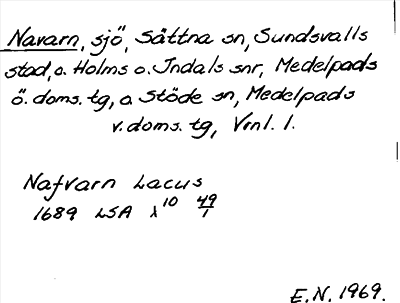 Navarn, sjö, Sättna sn, Sundsvalls
stad, o. Holms o. Indals snr, Medelpads
ö. doms. tg, o. Stöde sn, Medelpads
v. doms. tg, Vrnl. l.
Nafvarn Lacus
1689 LSA λ 10 49/1
E.N. 1969.